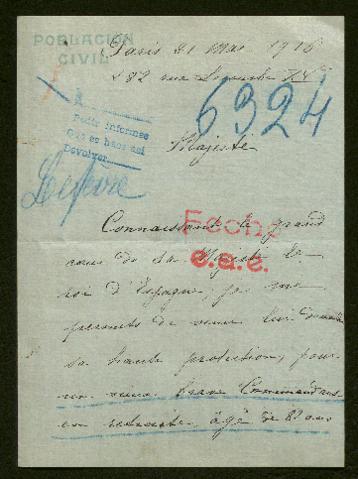 POBLACION
CIVIL
Paris 21 Mai 1916
82 rue
6324
Pedir informes
Que se haga así
Devolver
Majesté
Lefevre
Connaissant le grand
Fecho
cœur de Sa Majesté le
e.a.e.
roi d'Espagne, je me
permets de venir lui demander
sa haute protection, pour
un vieux brave Commandant
en retraite, âgé de 82 ans